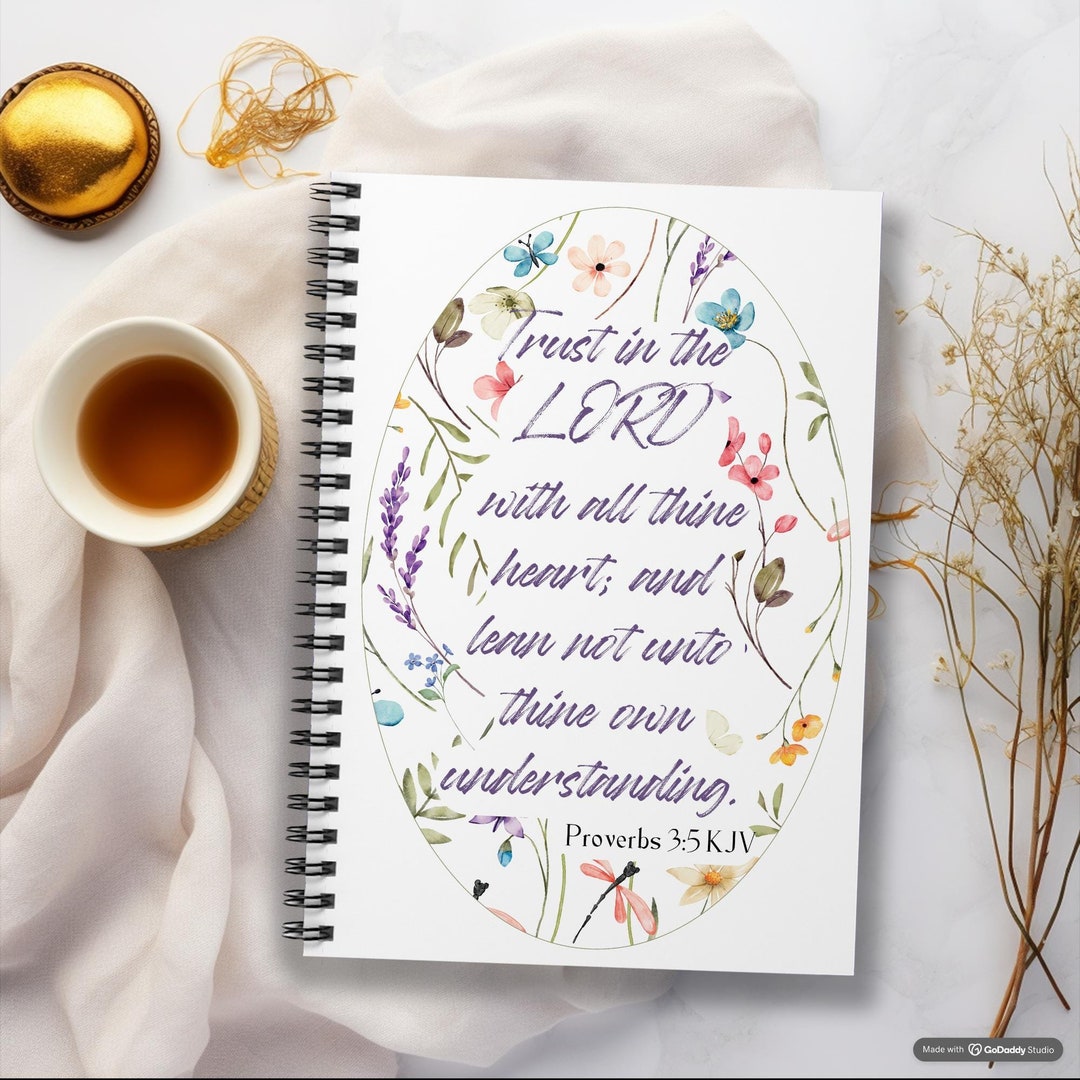 Trust in the
LORD
with all thine
heart; and
lean not unto
thine own
understanding.
Proverbs 3:5 KJV
Made with GoDaddy Studio